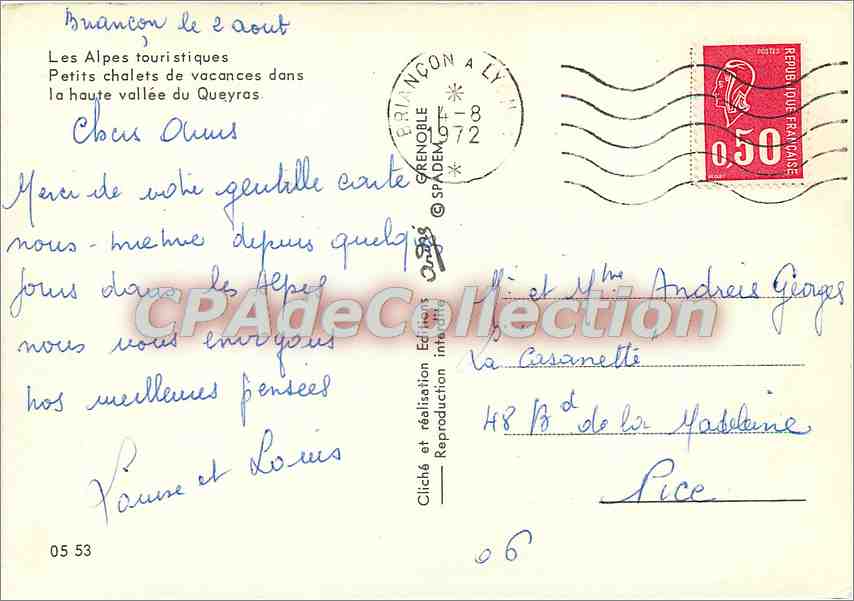 Briançon le 2 aout
Les Alpes touristiques
Petits chalets de vacances dans
la haute vallée du Queyras
Chers Amis
Merci de votre gentille carte
nous-meme depuis quelques
jours dans les Alpes
nous vous envoyons
nos meilleures pensées
Louise et Louis
05 53
BRIANÇON A LYON
4-8
1972
GRENOBLE
© SPADEM
andré
Cliché et réalisation Editions
Reproduction interdite
POSTES
REPUBLIQUE FRANÇAISE
0,50
Mr et Mme Andreis Georges
La Casanette
48 Bd de la Madeleine
Nice
06
CPAdeCollection